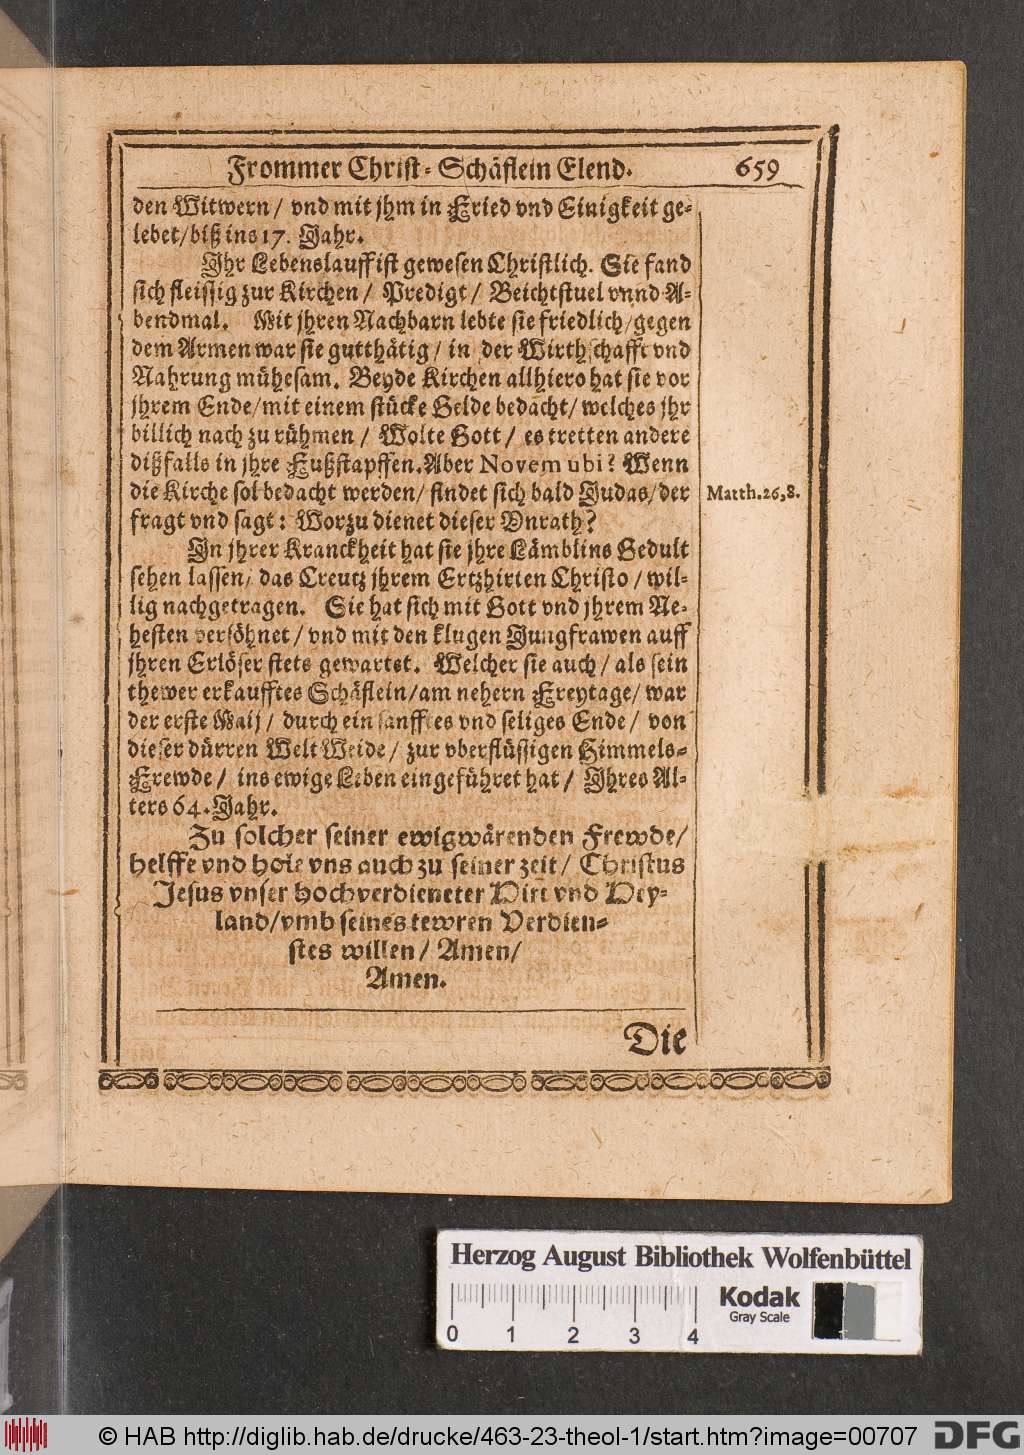 Frommer Christ-Schäflein Elend. 659
den Witwern/ vnd mit jhm in Fried vnd Einigkeit ge-
lebet/biß ins 17. Jahr.
Ihr Lebenslauff ist gewesen Christlich. Sie fand
sich fleissig zur Kirchen/ Predigt/ Beichtstuel vnnd A-
bendmal. Mit jhren Nachbarn lebte sie friedlich/gegen
dem Armen war sie gutthätig/ in der Wirthschafft vnd
Nahrung mühesam. Beyde Kirchen allhiero hat sie vor
jhrem Ende/mit einem stücke Gelde bedacht/ welches jhr
billich nach zu rühmen/ Wolte Gott/ es tretten andere
dißfalls in jhre Fußstapffen. Aber Novem ubi? Wenn
die Kirche sol bedacht werden/ findet sich bald Judas/der
Matth.26,8.
fragt vnd sagt: Worzu dienet dieser Vnrath?
In jhrer Kranckheit hat sie jhre Lämblins Gedult
sehen lassen/ das Creutz jhrem Ertzhirten Christo/ wil-
lig nachgetragen. Sie hat sich mit Gott vnd jhrem Ne-
hesten versöhnet/ vnd mit den klugen Jungfrawen auff
jhren Erlöser stets gewartet. Welcher sie auch/ als sein
thewer erkaufftes Schäflein/am nehern Freytage/ war
der erste Maij/ durch ein sanfftes vnd seliges Ende/ von
dieser dürren Welt Weide/ zur vberflüssigen Himmels-
Frewde/ ins ewige Leben eingeführet hat/ Ihres Al-
ters 64. Jahr.
Zu solcher seiner ewigwärenden Frewde/
helffe vnd hole vns auch zu seiner zeit/ Christus
Jesus vnser hochverdieneter Hirt vnd Hey-
land/vmb seines tewren Verdien-
stes willen/ Amen/
Amen.
Die
Herzog August Bibliothek Wolfenbüttel
0 1 2 3 4
Kodak
Gray Scale
© HAB http://diglib.hab.de/drucke/463-23-theol-1/start.htm?image=00707
DFG